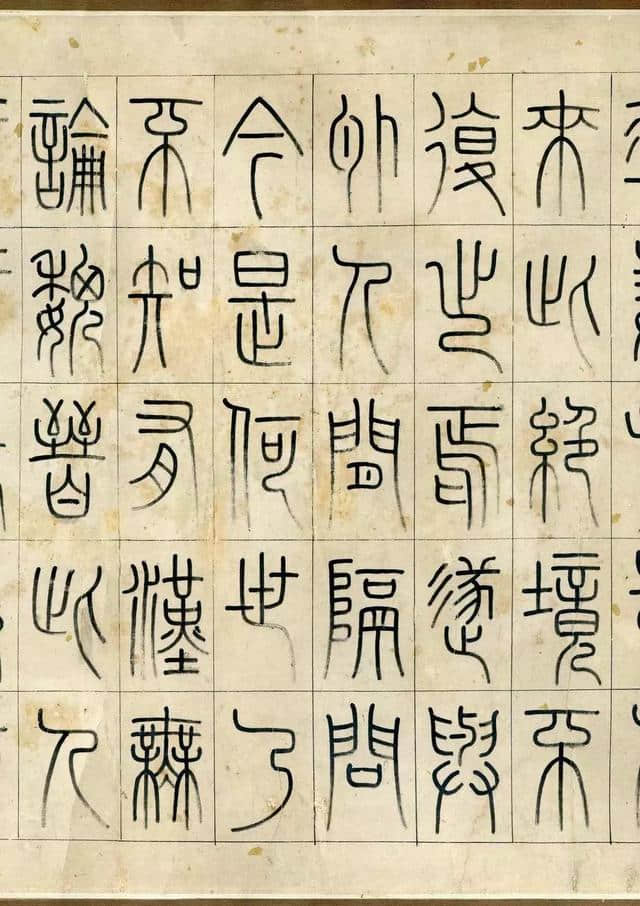 來此絕境不
復出焉遂與
外人間隔問
今是何世乃
不知有漢無
論魏晉此人